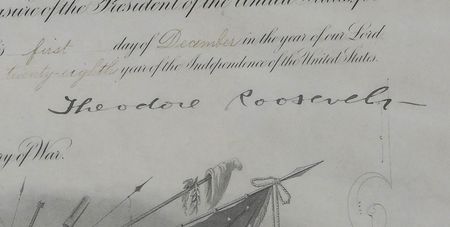 of the President of the United
first day of December in the year of our Lord
twenty-eighth year of the Independence of the United States.
Theodore Roosevelt
of War.